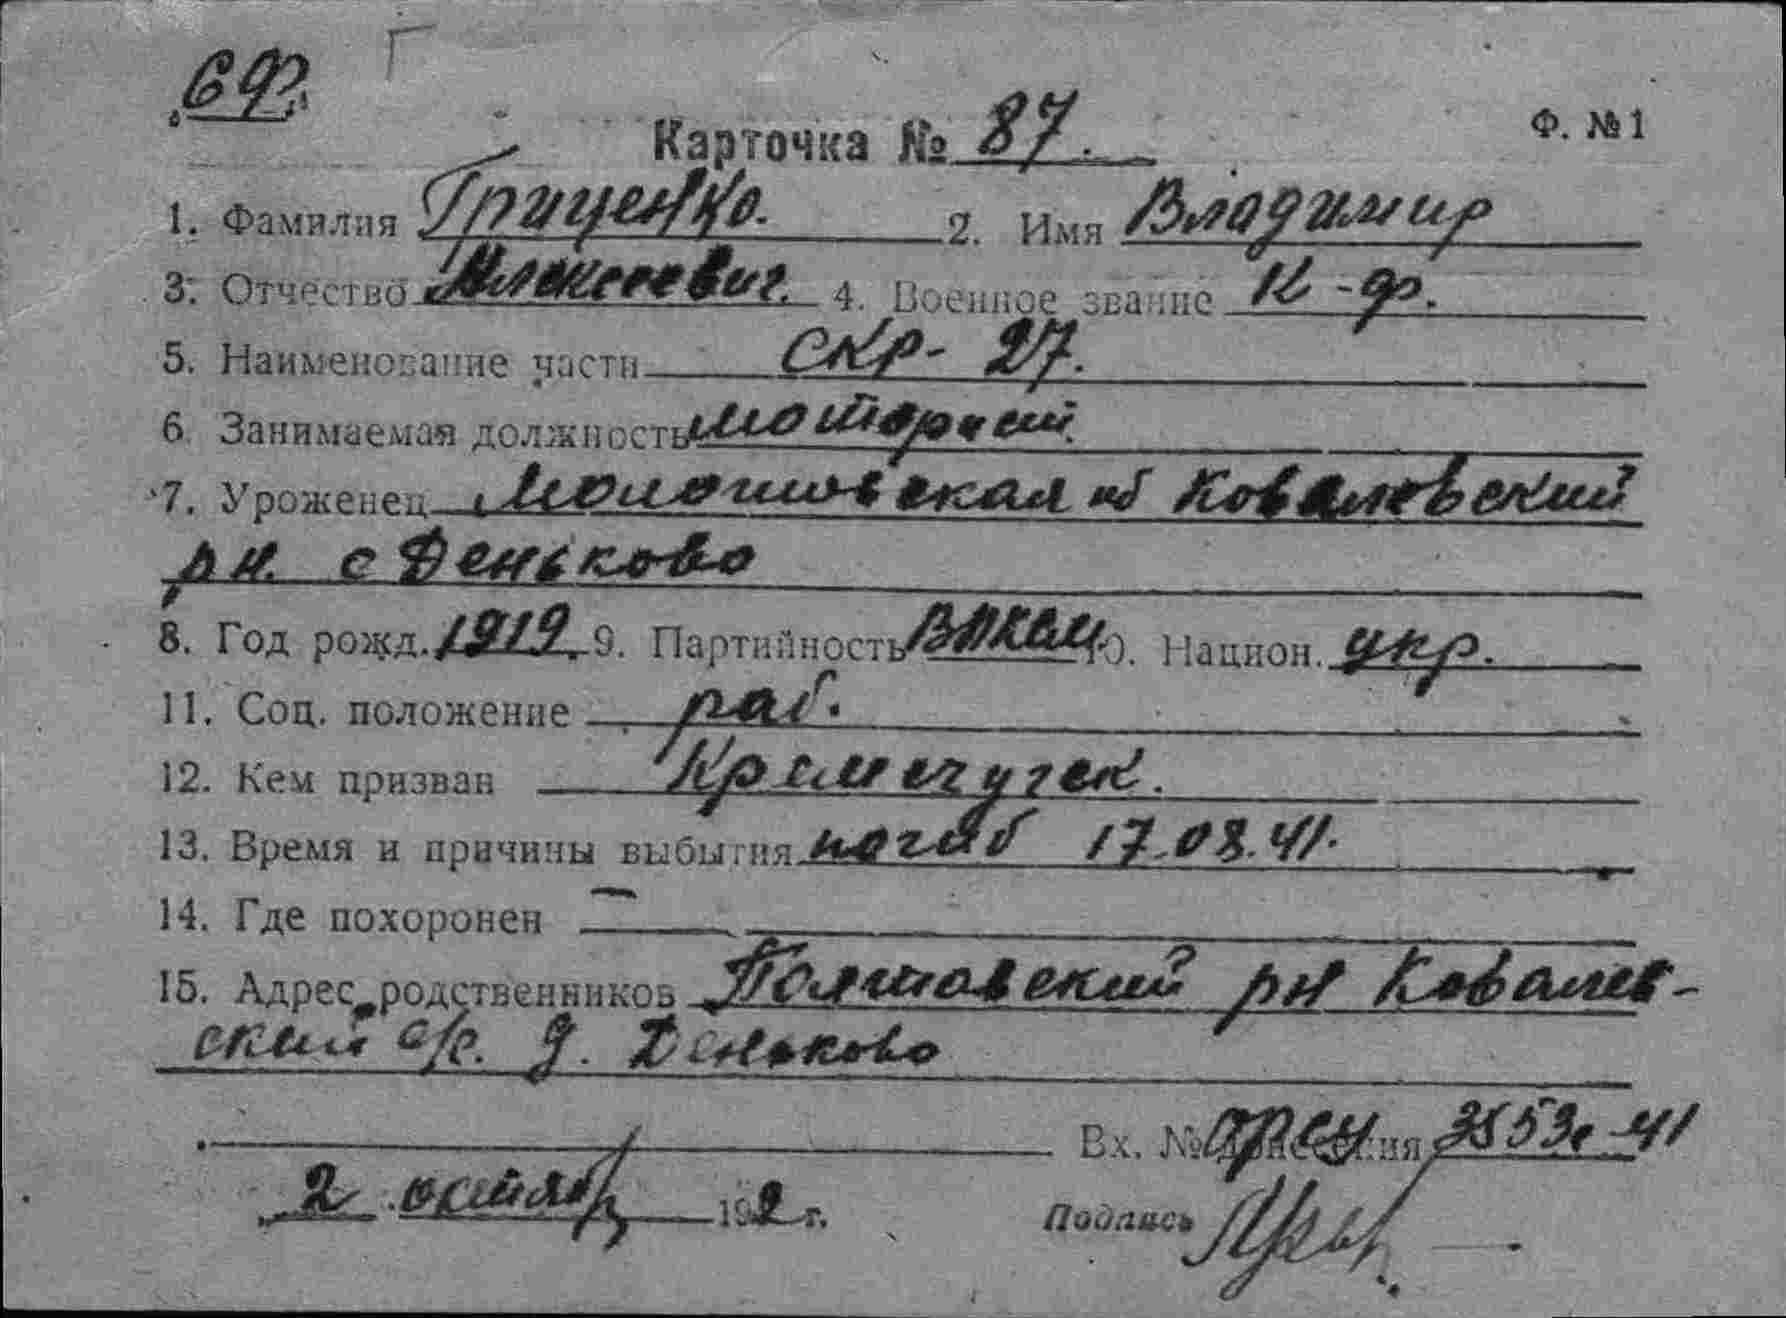 Г
Карточка № 87.
Ф. №1
1. Фамилия Гриценко. 2. Имя Владимир
3. Отчество Алексеевич. 4. Военное звание К-ф.
5. Наименование части СКР- 27.
6. Занимаемая должность моторист.
7. Уроженец об Ковалевский
рн. с Деньково
8. Год рожд. 1919. 9. Партийность ВЛКСМ 10. Национ. укр.
11. Соц. положение раб.
12. Кем призван Кременчугск.
13. Время и причины выбытия погиб 17.08.41.
14. Где похоронен —
15. Адрес родственников Полтавский рн Ковалев-
ский с/с. д. Деньково
Вх. №
2 октябр 1942 г.
Подпись